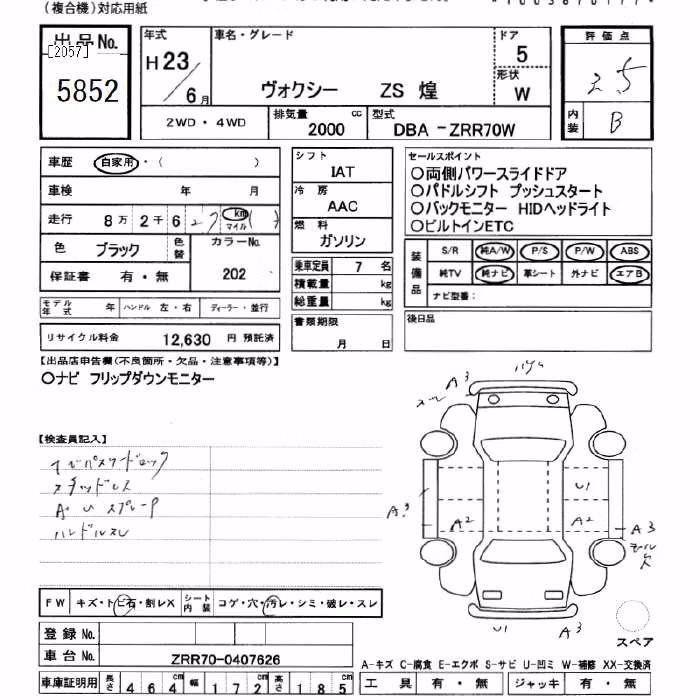 (複合機)対応用紙
出品No.
[2057]
5852
年式
H23/6月
車名・グレード
ヴォクシー ZS 煌
ドア
5
形状
W
評価点
内装
B
2WD・4WD
排気量
2000 cc
型式
DBA-ZRR70W
車歴 自家用・( )
車検 年 月
走行 8万2千6 km マイル
色 ブラック 色替
カラーNo.
202
保証書 有・無
モデル年式 年 ハンドル 左・右 ディーラー・並行
リサイクル料金 12,630 円 預託済
シフト
IAT
冷房
AAC
燃料
ガソリン
乗車定員 7 名
積載量 kg
総重量 kg
書類期限
月 日
セールスポイント
○両側パワースライドドア
○パドルシフト プッシュスタート
○バックモニター HIDヘッドライト
○ビルトインETC
装備品
S/R 純A/W P/S P/W ABS
純TV 純ナビ 革シート 外ナビ エアB
ナビ型番:
後日品
【出品店申告欄(不良箇所・欠品・注意事項等)】
○ナビ フリップダウンモニター
【検査員記入】
ハンドルスレ
A3
A3
A2
U1
A2
A3
U1
A3
スペア
FW キズ・トビ石・割レX シート内装 コゲ・穴・汚レ・シミ・破レ・スレ
登録No.
車台No. ZRR70-0407626
車庫証明用 長さ 464cm 幅 172cm 高さ 185cm
A-キズ C-腐食 E-エクボ S-サビ U-凹ミ W-補修 XX-交換済
工具 有・無 ジャッキ 有・無